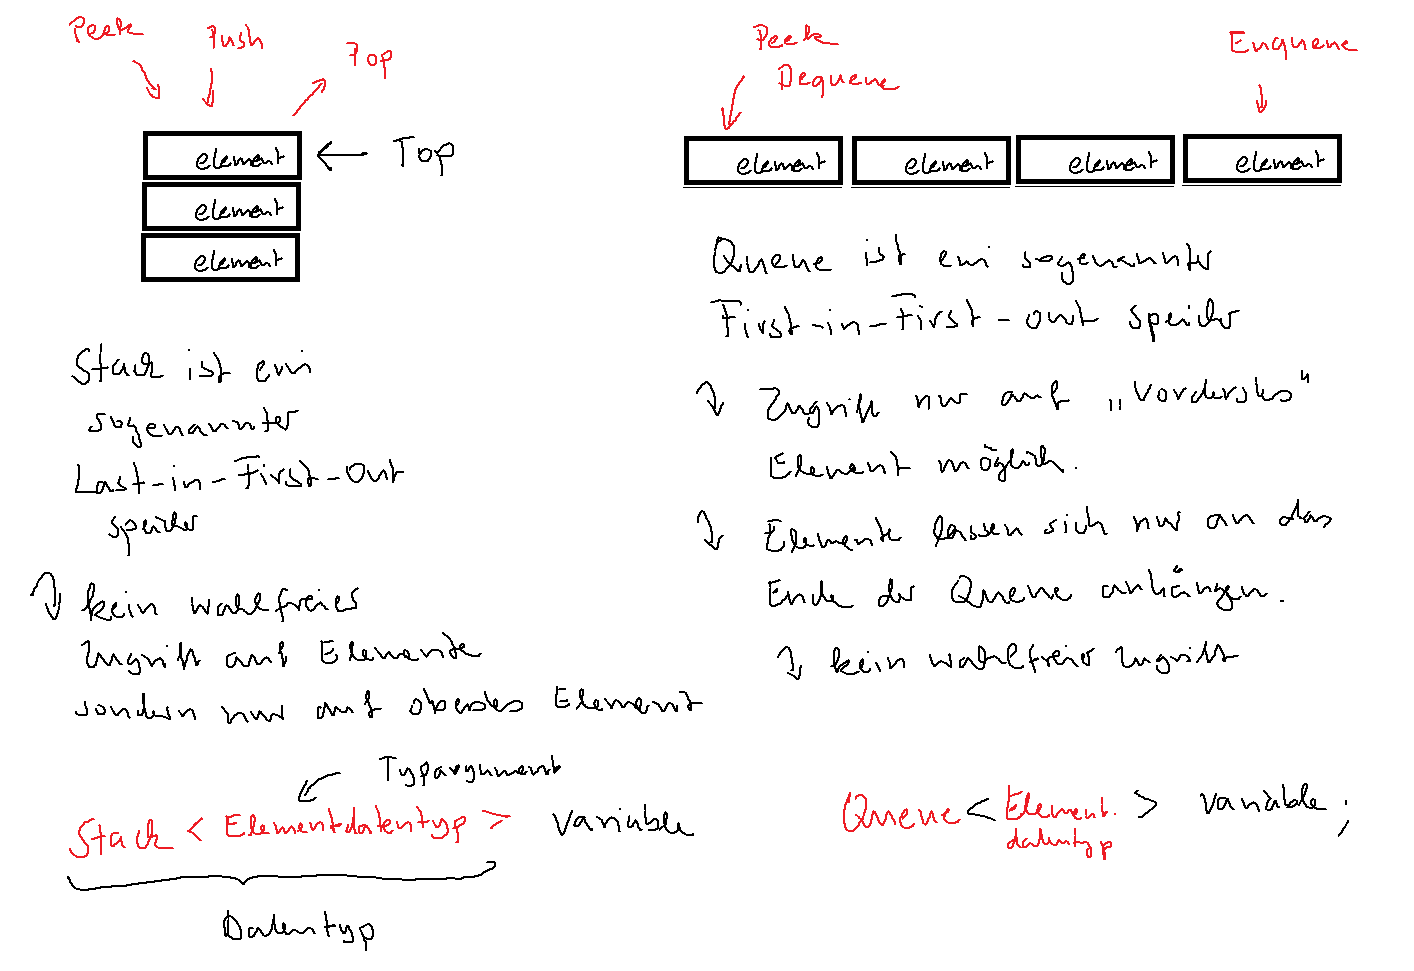 Peek
Push
Pop
element
Top
element
element
Stack ist ein
sogenannter
Last-in-First-Out
speicher
kein wahlfreies
Zugriff auf Elemente
sondern nur auf oberstes Element
Typargument
Stack < Elementdatentyp > Variable
Datentyp
Peek
Dequeue
Enqueue
element element element element
Queue ist ein sogenannter
First-in-First-out speicher
Zugriff nur auf „Vorderstes“
Element möglich.
Elemente lassen sich nur an das
Ende der Queue anhängen.
kein wahlfreier Zugriff
Queue < Element. > Variable ;
datentyp